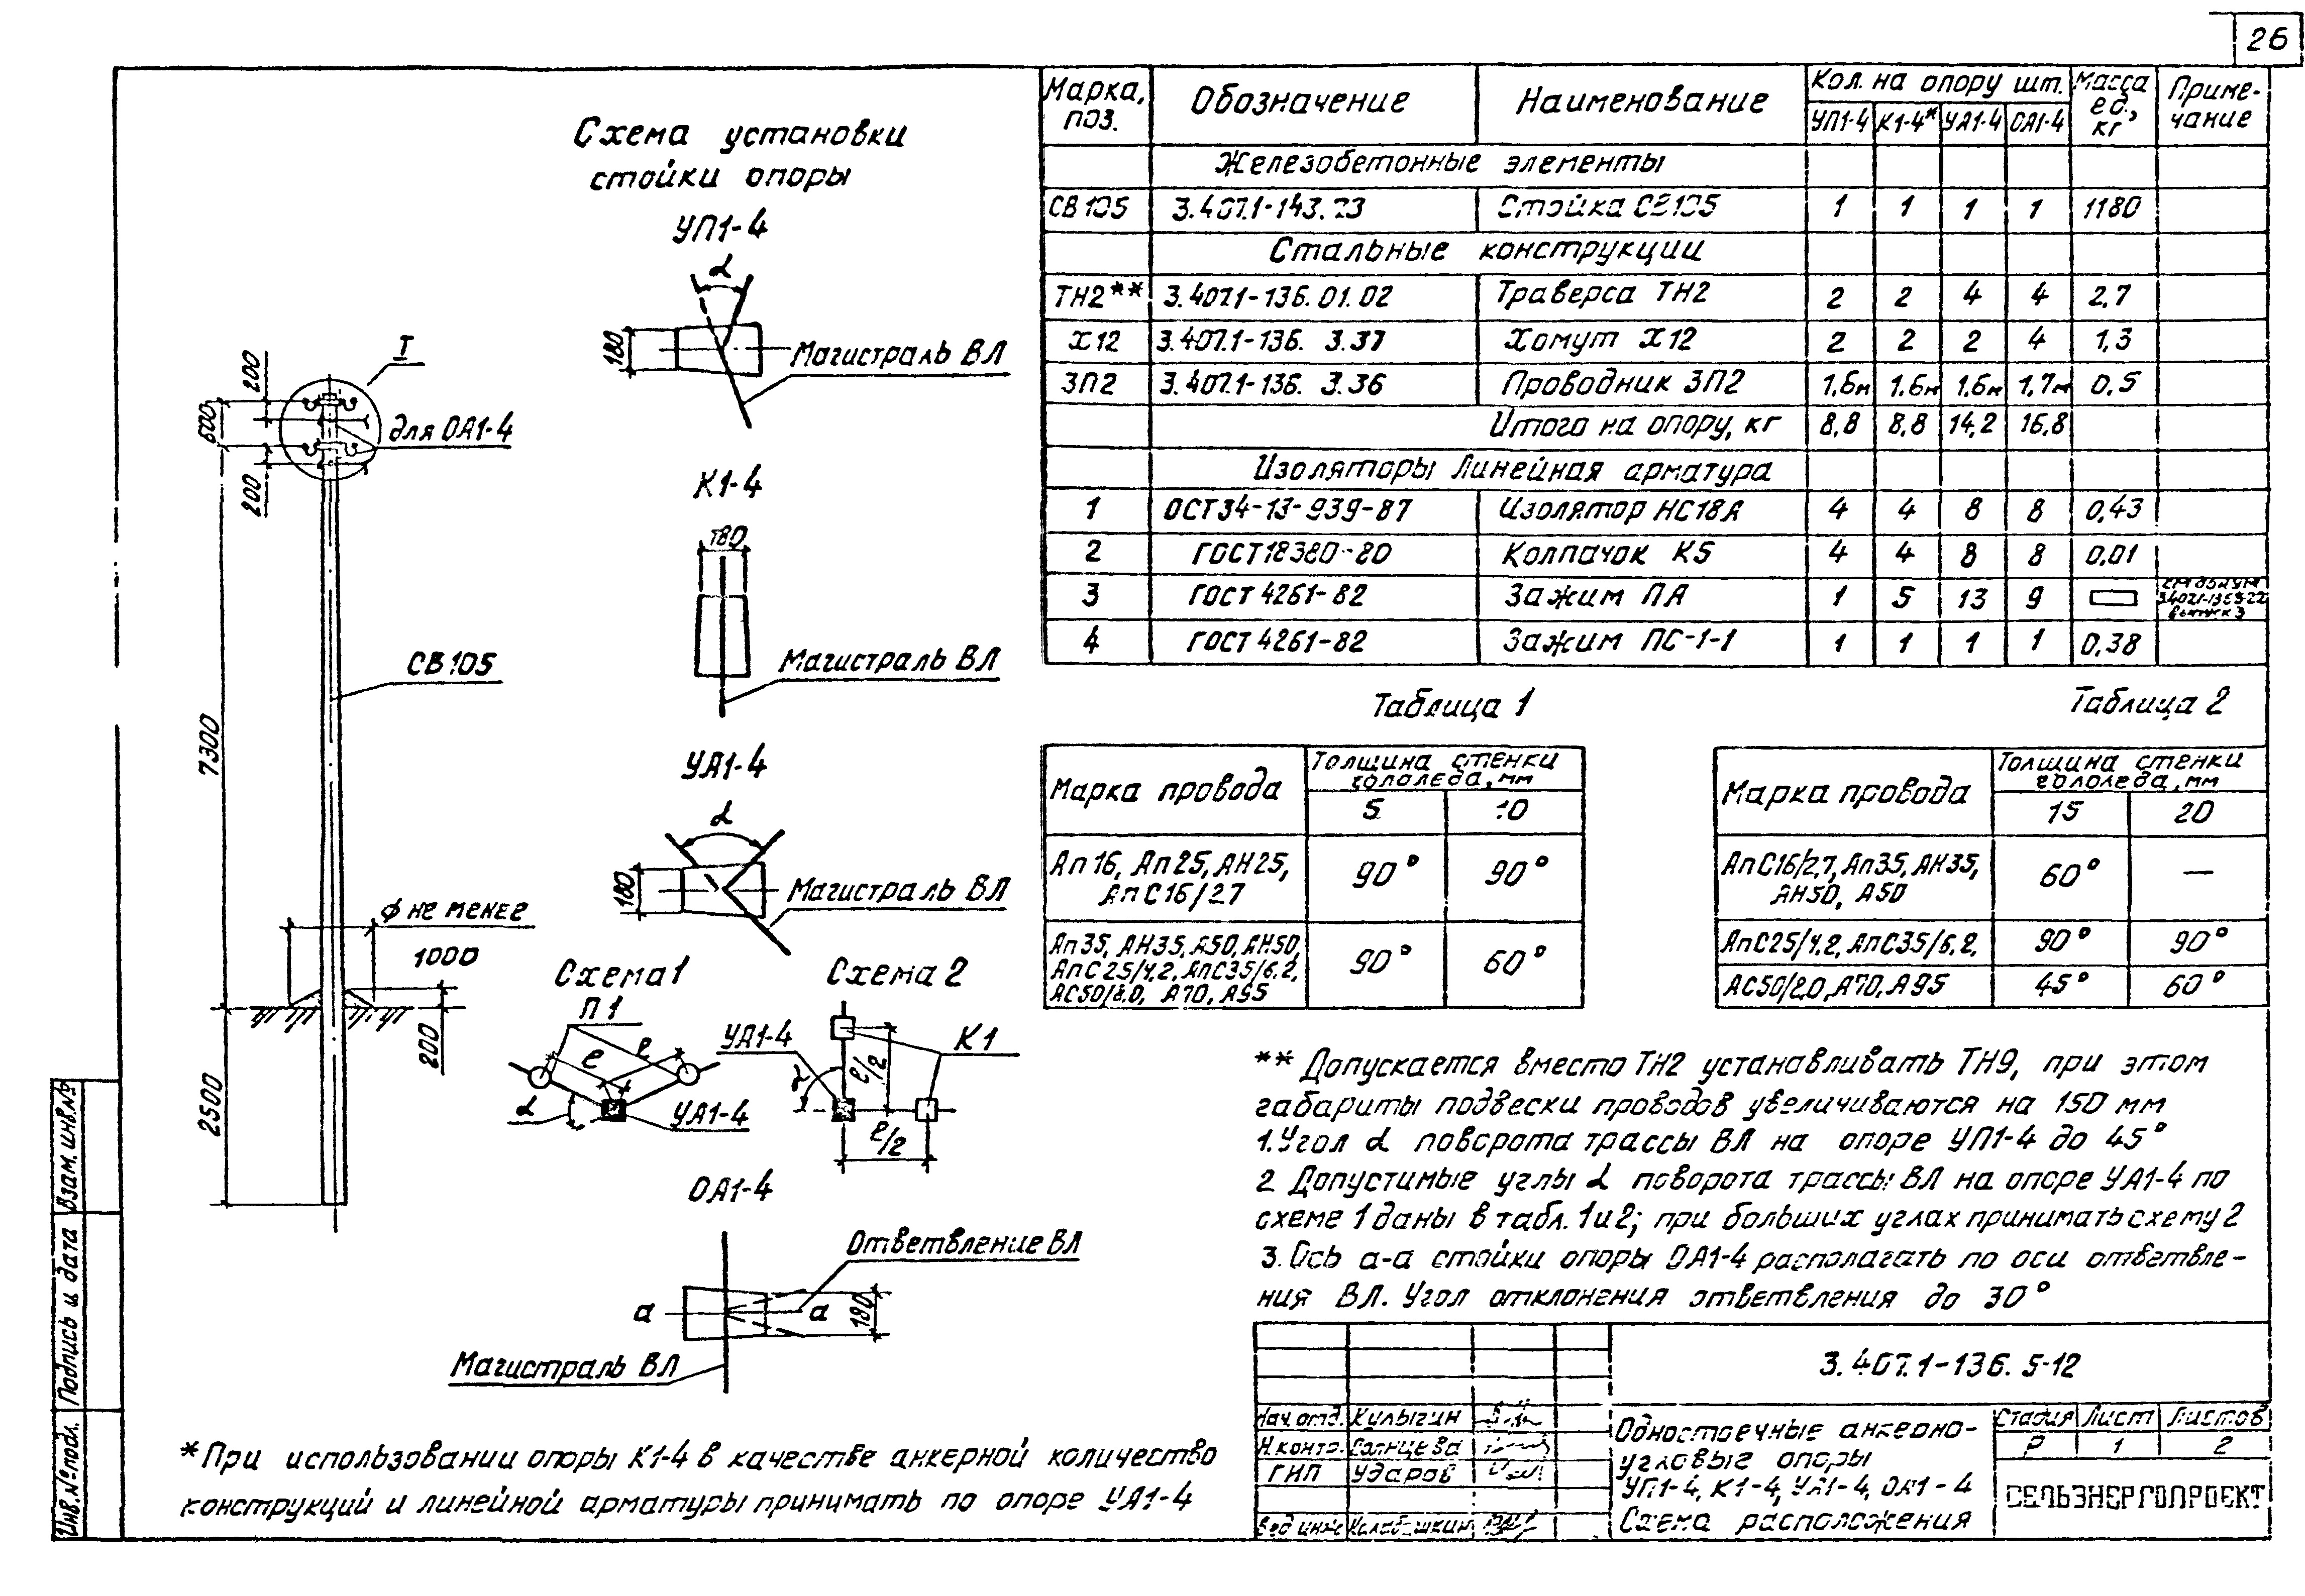 26
Схема установки
стойки опоры
УП1-4
α
180
Магистраль ВЛ
К1-4
180
Магистраль ВЛ
УА1-4
α
180
Магистраль ВЛ
I
200
600
для ОА1-4
200
СВ105
7300
ϕ не менее
1000
200
2500
Схема 1
П1
ℓ
ℓ
α
УА1-4
Схема 2
УА1-4
К1
ℓ/2
α
ℓ/2
ОА1-4
Ответвление ВЛ
а
а
180
Магистраль ВЛ
*При использовании опоры К1-4 в качестве анкерной количество
конструкций и линейной арматуры принимать по опоре УА1-4
Марка, поз. Обозначение Наименование Кол. на опору шт. Масса ед., кг Приме-чание
УП1-4 К1-4* УА1-4 ОА1-4
Железобетонные элементы
СВ105 3.407.1-143. Стойка СВ105 1 1 1 1 1180
Стальные конструкции
ТН2** 3.407.1-136.01.02 Траверса ТН2 2 2 4 4 2,7
Х12 3.407.1-136. 3.37 Хомут Х12 2 2 2 4 1,3
ЗП2 3.407.1-136. 3.36 Проводник ЗП2 1,6м 1,6м 1,6м 1,7м 0,5
Итого на опору, кг 8,8 8,8 14,2 16,8
Изоляторы Линейная арматура
1 ОСТ34-13-939-87 Изолятор НС18А 4 4 8 8 0,43
2 ГОСТ18380-80 Колпачок К5 4 4 8 8 0,01
3 ГОСТ 4261-82 Зажим ПА 1 5 13 9
выпуск 3
4 ГОСТ 4261-82 Зажим ПС-1-1 1 1 1 1 0,38
Таблица 1
Марка провода Толщина стенки гололеда, мм
5 10
Ап16, Ап25, АН25, 90° 90°
АпС16/2.7
Ап35, АН35, А50, АН50, 90° 60°
АпС25/4,2, АпС35/6,2,
АС50/8,0, А70, А95
Таблица 2
Марка провода Толщина стенки гололеда, мм
15 20
АпС16/2,7, Ап35, АН35, 60° —
АН50, А50
АпС25/4,2, АпС35/6,2, 90° 90°
АС50/8,0, А70, А95 45° 60°
** Допускается вместо ТН2 устанавливать ТН9, при этом
габариты подвески проводов увеличиваются на 150 мм
1. Угол α поворота трассы ВЛ на опоре УП1-4 до 45°
2 Допустимые углы α поворота трассы ВЛ на опоре УА1-4 по
схеме 1 даны в табл. 1 и 2; при больших углах принимать схему 2
3. Ось а-а стойки опоры ОА1-4 располагать по оси ответвле-
ния ВЛ. Угол отклонения ответвления до 30°
3.407.1-136. 5-12
Нач. отд. Кулыгин
Н.контр. Солнцева
ГИП Ударов
Вед инж
Одностоечные анкерно-
угловые опоры
УП1-4, К1-4, УА1-4, ОА1-4
Схема расположения
Стадия Лист Листов
Р 1 2
СЕЛЬЭНЕРГОПРОЕКТ
Взам. инв.№
Подпись и дата
Инв.№ подл.